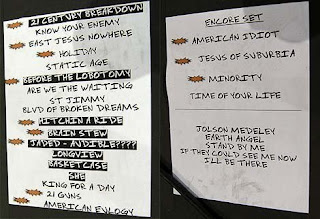 21 CENTURY BREAKDOWN
KNOW YOUR ENEMY
EAST JESUS NOWHERE
HOLIDAY
STATIC AGE
BEFORE THE LOBOTOMY
ARE WE THE WAITING
ST JIMMY
BLVD OF BROKEN DREAMS
HITCHIN A RIDE
BRAIN STEW
JADED - AUDIBLE????
LONGVIEW
BASKET CASE
SHE
KING FOR A DAY
21 GUNS
AMERICAN EULOGY
ENCORE SET
AMERICAN IDIOT
JESUS OF SUBURBIA
MINORITY
TIME OF YOUR LIFE
JOLSON MEDELEY
EARTH ANGEL
STAND BY ME
IF THEY COULD SEE ME NOW
I'LL BE THERE